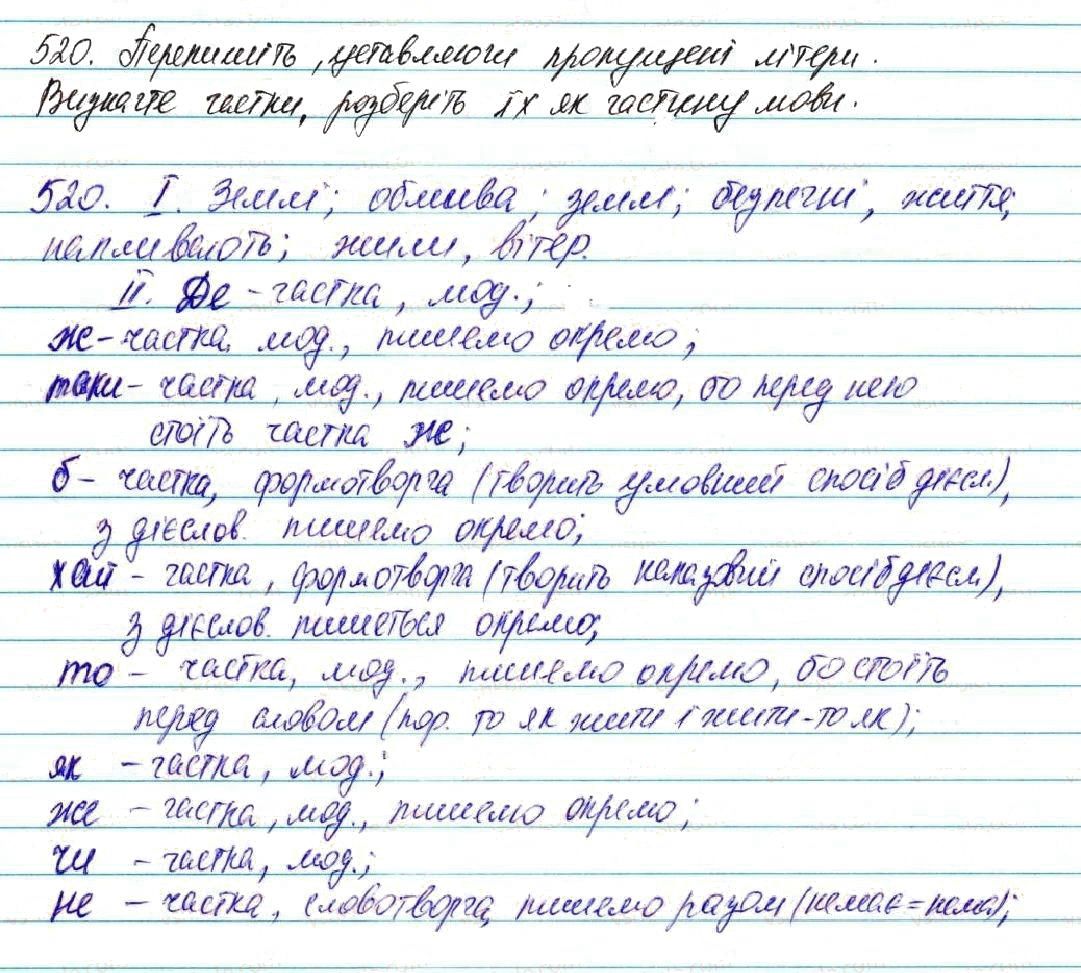 520. Перепишіть, уставляючи пропущені літери.
Визначте частки, розберіть їх як частину мови.
520. I. Землі; обмива; землі; безпечні, життя,
напливають; жили, вітер.
II. Де - частка, мод.;
ж - частка, мод., пишемо окремо;
таки - частка, мод., пишемо окремо, бо перед нею
стоїть частка ж;
б - частка, формотворча (творить умовний спосіб дієсл.),
з дієслов. пишемо окремо;
хай - частка, формотворча (творить наказовий спосіб дієсл.),
з дієслов. пишеться окремо;
то - частка, мод., пишемо окремо, бо стоїть
перед словом (пор. то як жити і жити-то як);
як - частка, мод.;
же - частка, мод., пишемо окремо;
чи - частка, мод.;
не - частка, словотворча, пишемо разом (немає = нема);